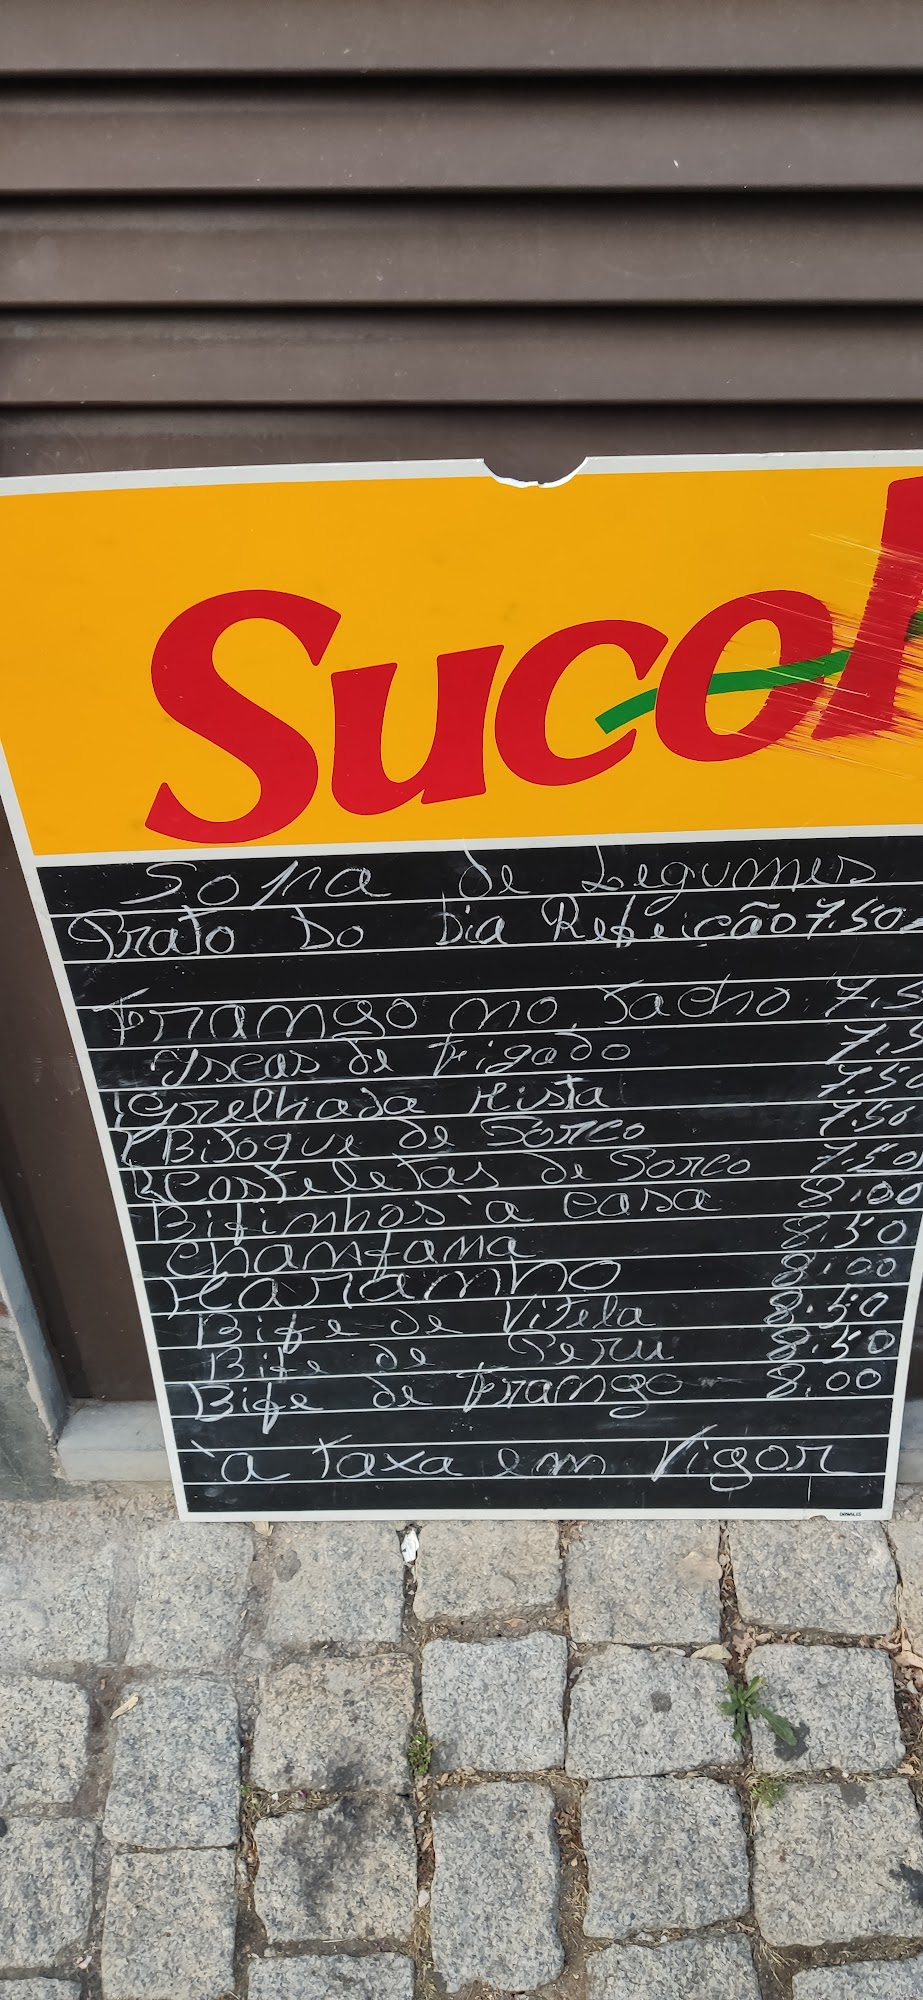 Sucol
Sopa de Legumes
Prato Do Dia Refeição 7.50
Frango no Tacho 7.5
Iscas de Figado 7.5
Grelhada Mista 7.50
Bitoque de Porco 7.50
Costeletas de Porco 7.50
Bifinhos à casa 8.00
Chanfana 8.50
Maranho 8.00
Bife de Vitela 8.50
Bife de Peru 8.50
Bife de Frango 8.00
à taxa em Vigor